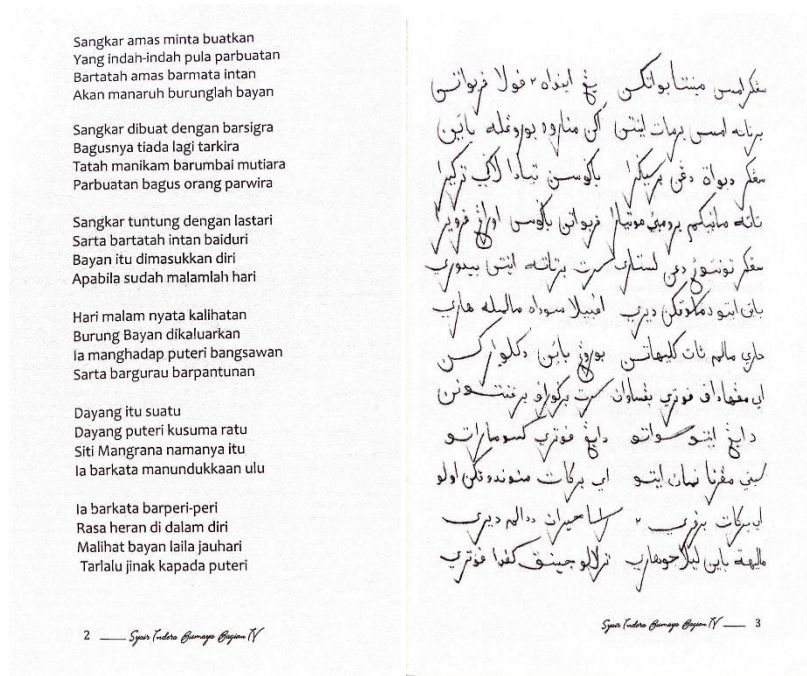 Sangkar amas minta buatkan
Yang indah-indah pula parbuatan
Bartatah amas barmata intan
Akan manaruh burunglah bayan
Sangkar dibuat dengan barsigra
Bagusnya tiada lagi tarkira
Tatah manikam barumbai mutiara
Parbuatan bagus orang parwira
Sangkar tuntung dengan lastari
Sarta bartatah intan baiduri
Bayan itu dimasukkan diri
Apabila sudah malamlah hari
Hari malam nyata kalihatan
Burung Bayan dikaluarkan
Ia manghadap puteri bangsawan
Sarta bargurau barpantunan
Dayang itu suatu
Dayang puteri kusuma ratu
Siti Mangrana namanya itu
Ia barkata manundukkaan ulu
Ia barkata barperi-peri
Rasa heran di dalam diri
Malihat bayan laila jauhari
Tarlalu jinak kapada puteri
2 Syair Indera Bumaya Bagian IV
سڠكر امس مينتا بواتكن يڠ اينداه ٢ فولا فربواتن
برتاته امس برمات اينتن اكن مناروه بوروڠله باين
سڠكر دبوات دڠن برسيگرا باگوسن تيادا لاگي تركيرا
تاته مانيكم برومبي موتيارا فربواتن باگوس اورڠ فرويرا
سڠكر تونتوڠ دڠن لستاري سرت برتاته اينتن بيدوري
باين ايتو دمسوقكن ديري افبيلا سوداه مالمله هاري
هاري مالم ڽات كليهاتن بوروڠ باين دكلواركن
اي مڠهادف فوتري بڠساوان سرت برگوراو برفنتونن
دايڠ ايتو سواتو دايڠ فوتري كسوما راتو
سيتي مڠرنا نمان ايتو اي بركات منوندوقكن اولو
اي بركات برفري ٢ راسا هيران ددالم ديري
ماليهة باين ليلا جوهاري ترلالو جينق كفدا فوتري
Syair Indera Bumaya Bagian IV 3